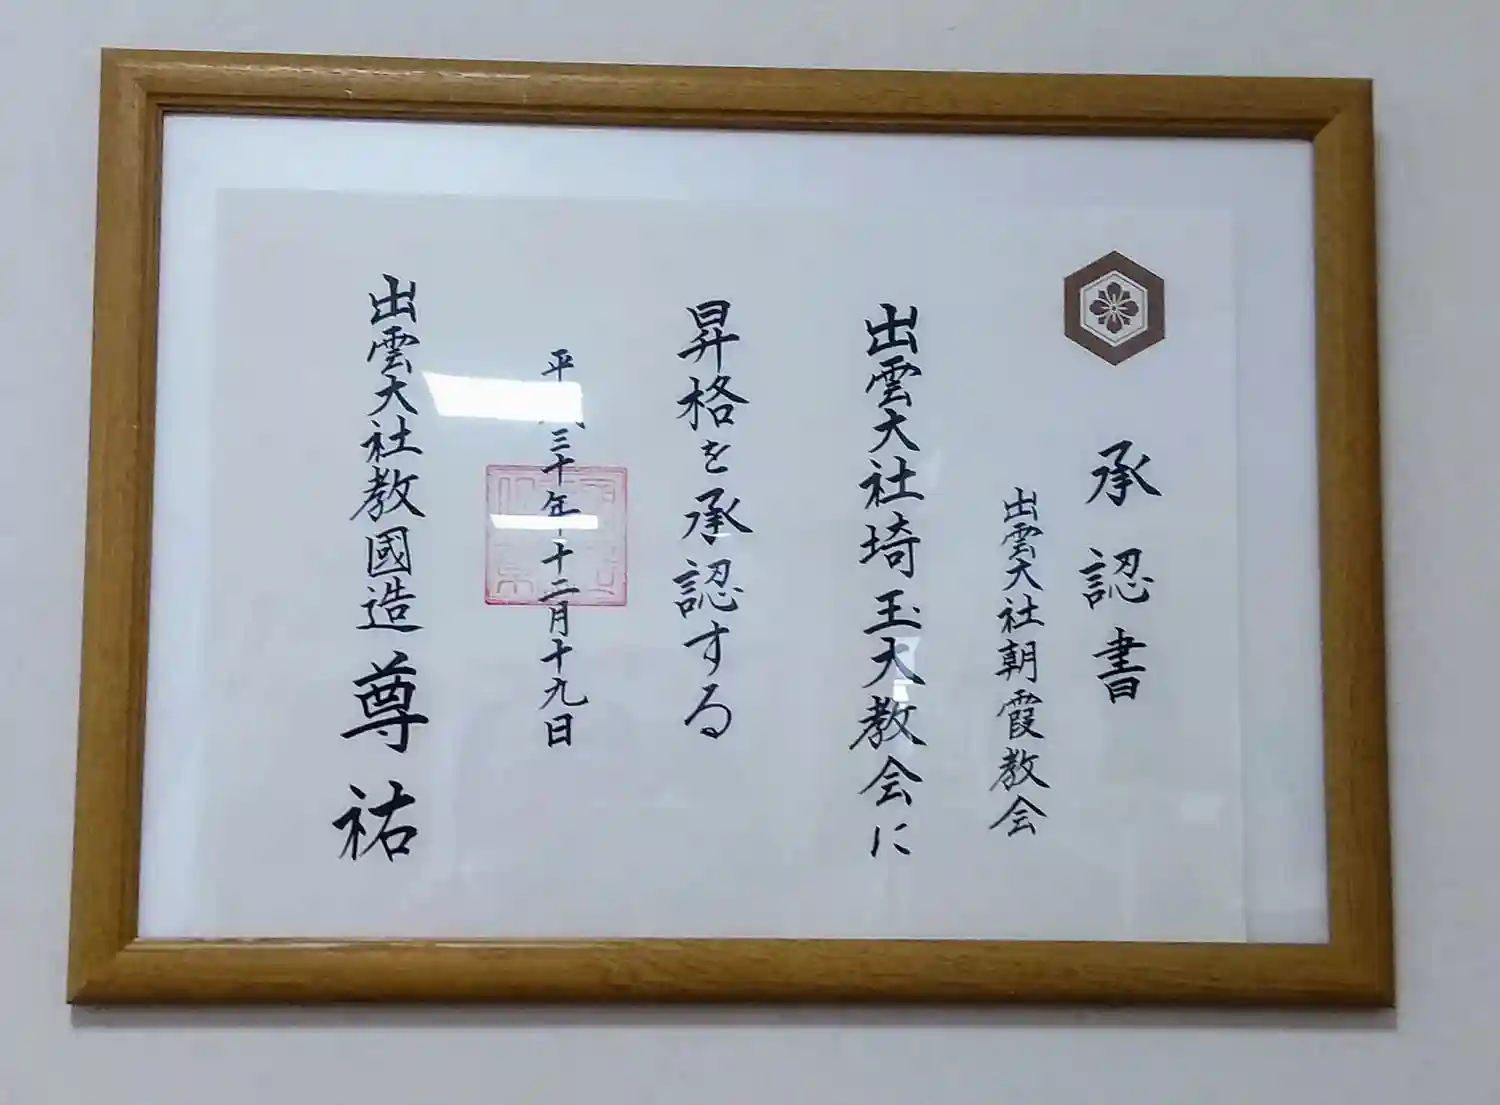 承認書
出雲大社朝霞教会
出雲大社埼玉大教会に
昇格を承認する
平成三十年十二月十九日
出雲大社教國造 尊祐